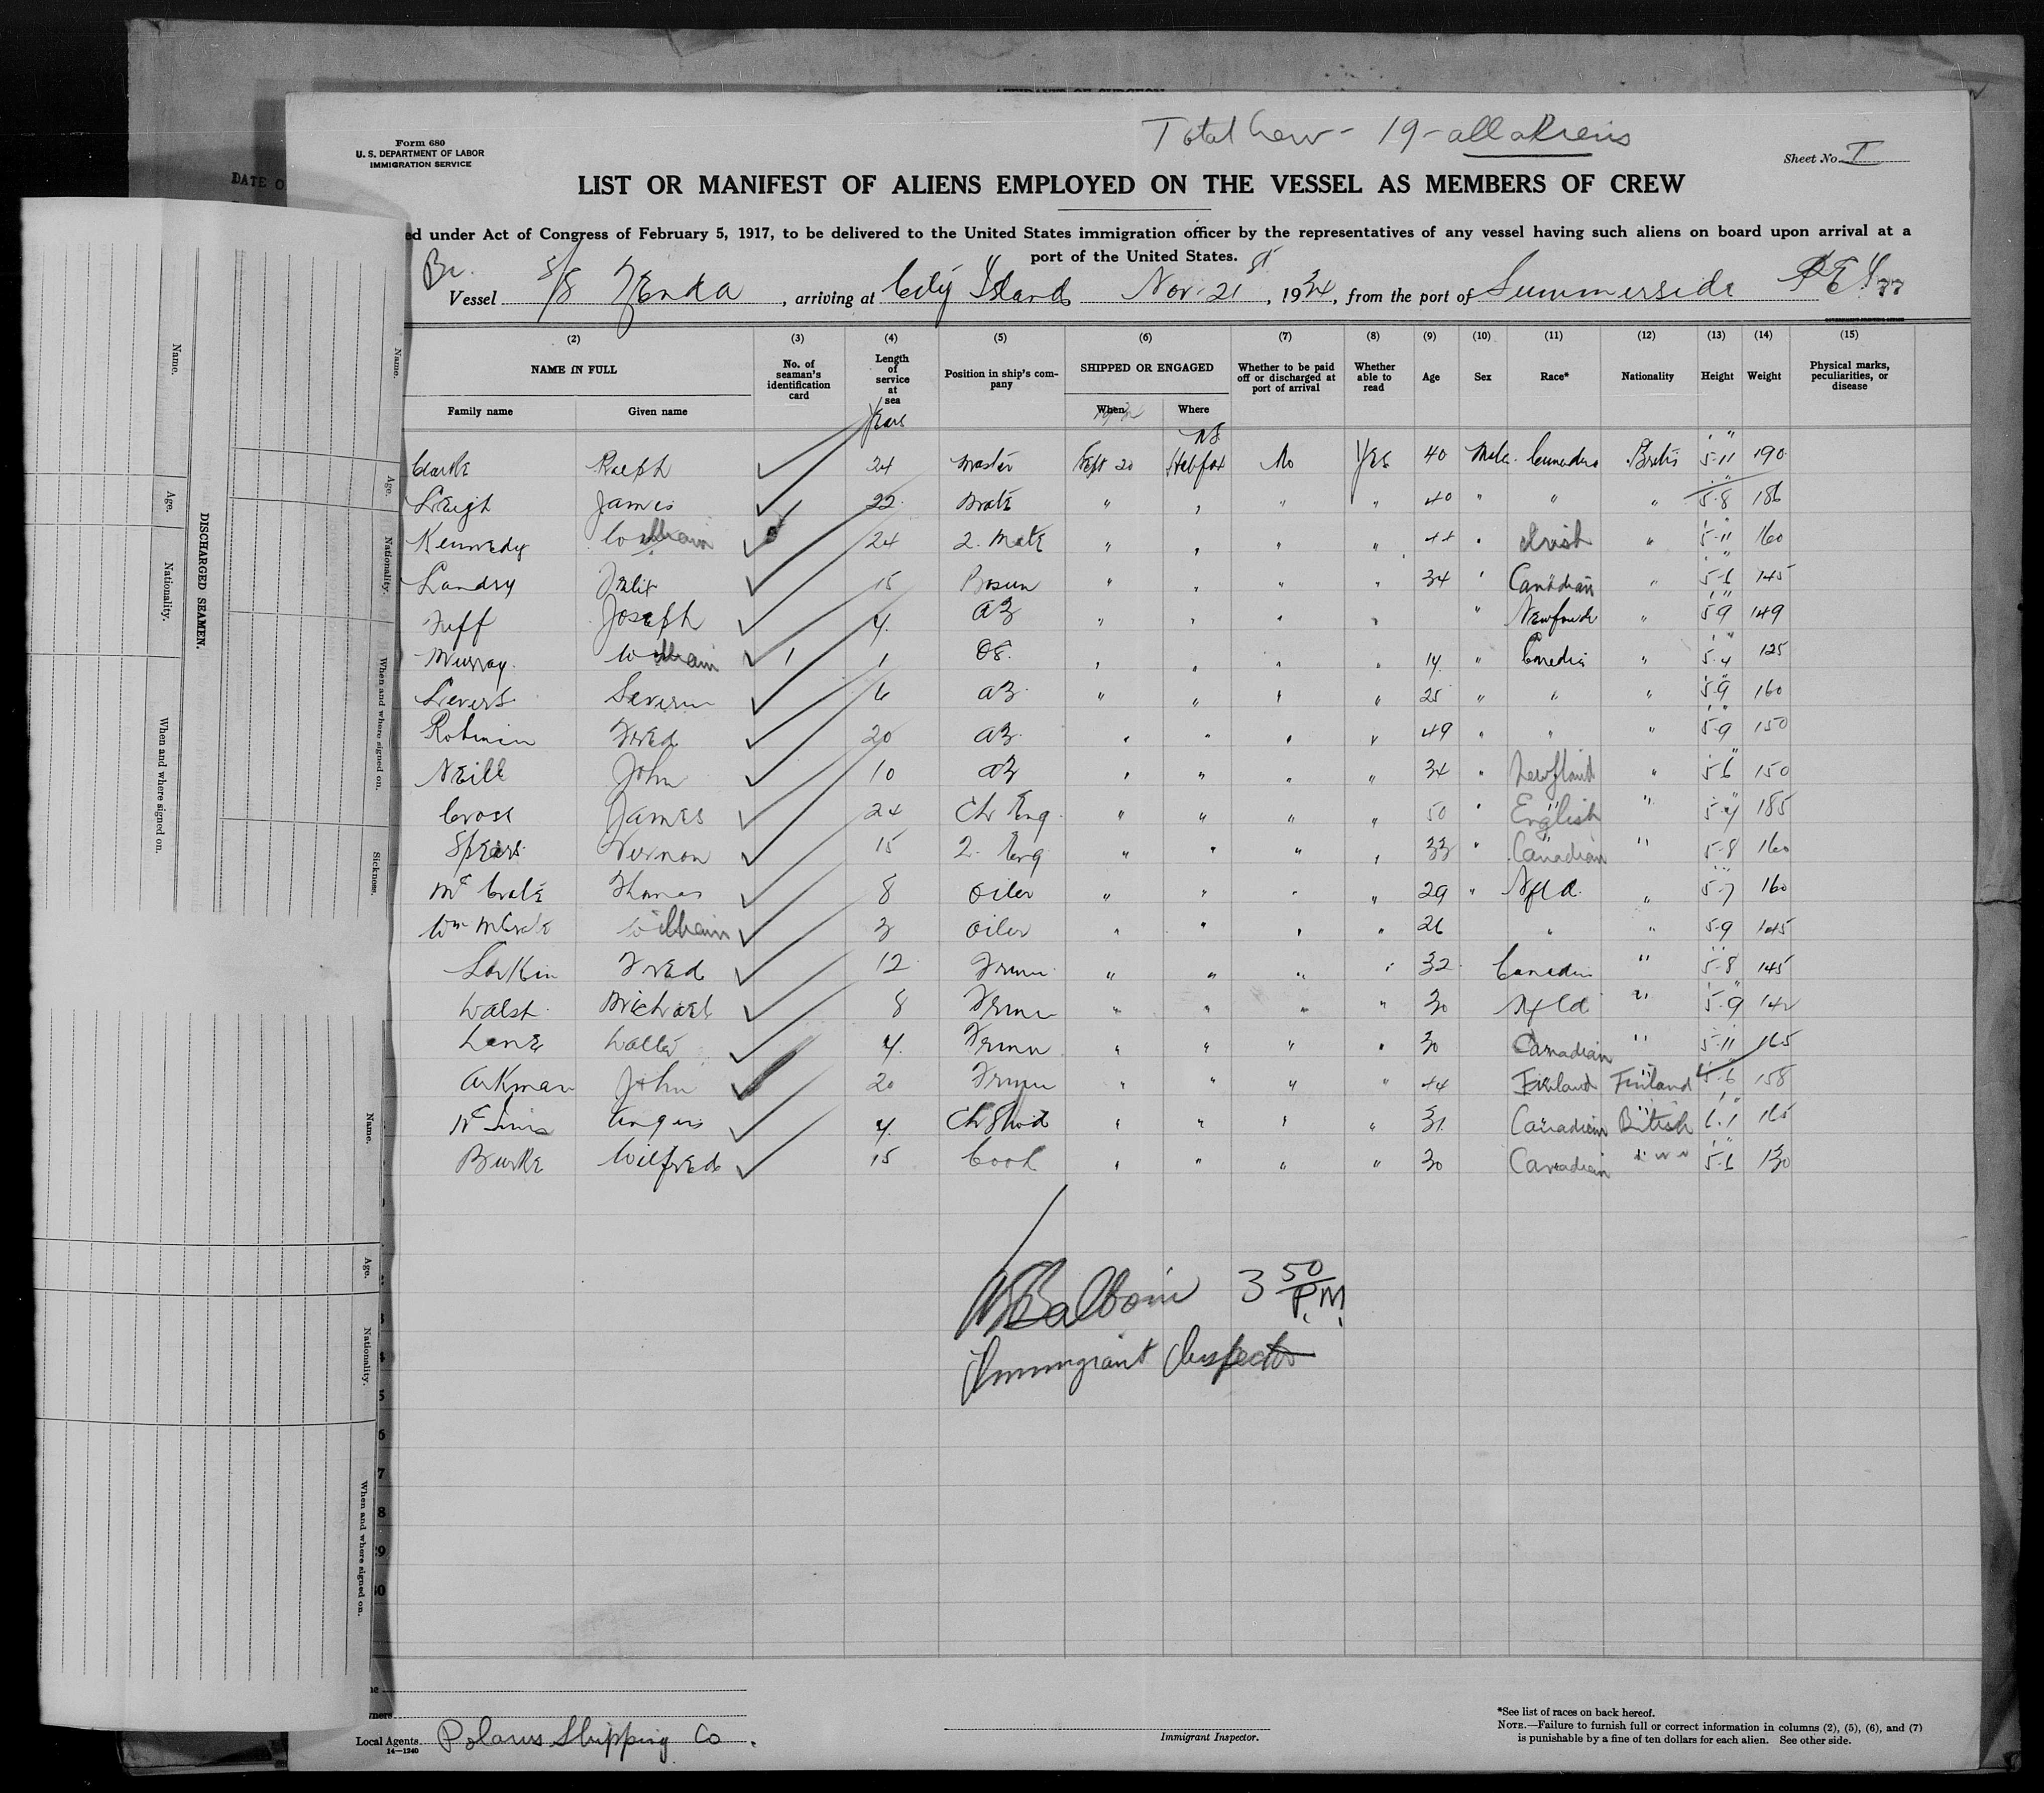 Total Crew - 19 - all aliens
Form 680
U. S. DEPARTMENT OF LABOR
IMMIGRATION SERVICE
Sheet No. I
DATE O
LIST OR MANIFEST OF ALIENS EMPLOYED ON THE VESSEL AS MEMBERS OF CREW
ed under Act of Congress of February 5, 1917, to be delivered to the United States immigration officer by the representatives of any vessel having such aliens on board upon arrival at a
port of the United States.
Br.
Vessel S/S Zenda, arriving at City Island Nov. 21 st, 1934, from the port of Summerside P E I
(2) (3) (4) (5) (6) (7) (8) (9) (10) (11) (12) (13) (14) (15)
NAME IN FULL No. of seaman's identification card Length of service at sea Position in ship's company SHIPPED OR ENGAGED Whether to be paid off or discharged at port of arrival Whether able to read Age Sex Race* Nationality Height Weight Physical marks, peculiarities, or disease
Family name Given name Years When Where
NS
Clarke Ralph 24 Master Sept 20 Halifax No Yes 40 Male Canadian British 5-11 190
Leigh James 22 Mate " " " " 40 " " " 5-8 186
Kennedy William 24 2. Mate " " " " 44 " Irish " 5-11 160
Landry Felix 15 Bosun " " " " 34 " Canadian " 5-6 145
Tuff Joseph 4 AB " " " " " " 5 9 149
Murray William 1 1 OS. " " " " 19 " " 5-4 125
Severin 6 AB " " " " 25 " " " 5-9 160
Fred 20 AB " " " " 49 " " " 5-9 150
Neill John 10 AB " " " " 34 " " 5 6 150
Cross James 24 Ch Eng " " " " 50 " English " 185
Spears Vernon 15 2. Eng " " " " 33 " Canadian " 5-8 160
Thomas 8 Oiler " " " " 29 " Nfld. " 5-7 160
William 3 Oiler " " " " 26 " " 5-9 145
Larkin Fred 12 " " " " 32 Canadian " 5-8 145
Walsh Michael 8 " " " " 30 Nfld " 5-9 142
Lane Walter 4 " " " " 30 Canadian " 5-11 165
John 20 " " " " 44 Finland Finland 5-6 158
Angus 4 " " " " 31 Canadian British 6-1
Burke Wilfred 15 Cook " " " " 30 Canadian " " " 5-6 130
3 50 P.M.
Immigrant Inspector
Name.
Age.
Nationality.
When and where signed on.
DISCHARGED SEAMEN.
Name.
Age.
Nationality.
When and where signed on.
Sickness.
Name.
Age.
Nationality.
When and where signed on.
Local Agents Polarus Shipping Co.
14—1240
Immigrant Inspector.
*See list of races on back hereof.
NOTE.—Failure to furnish full or correct information in columns (2), (5), (6), and (7)
is punishable by a fine of ten dollars for each alien. See other side.